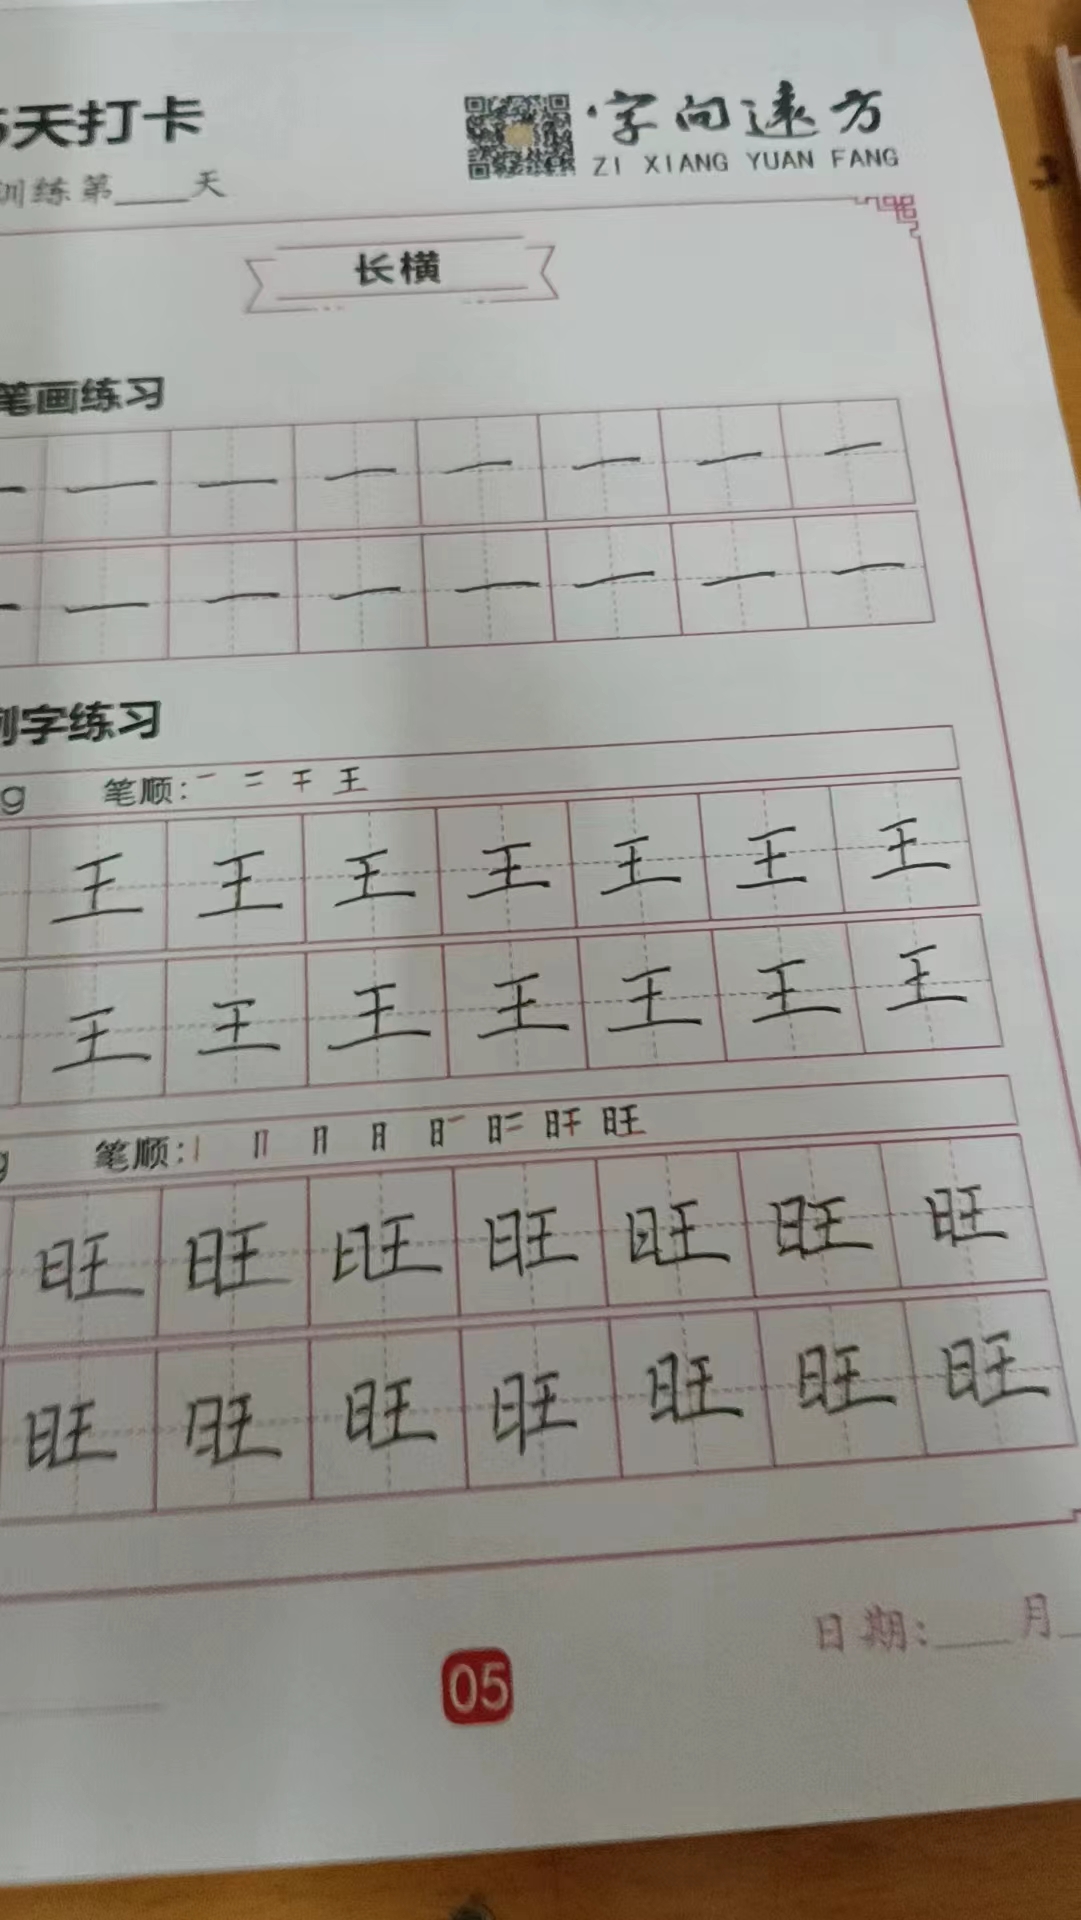 天打卡
字向远方
ZI XIANG YUAN FANG
训练第____天
长横
笔画练习
一 一 一 一 一 一 一 一
一 一 一 一 一 一 一 一
字练习
g 笔顺: 一 二 干 王
王 王 王 王 王 王 王
王 王 王 王 王 王 王
g 笔顺: 旺
旺 旺 旺 旺 旺 旺 旺
旺 旺 旺 旺 旺 旺 旺
日期:____月
05